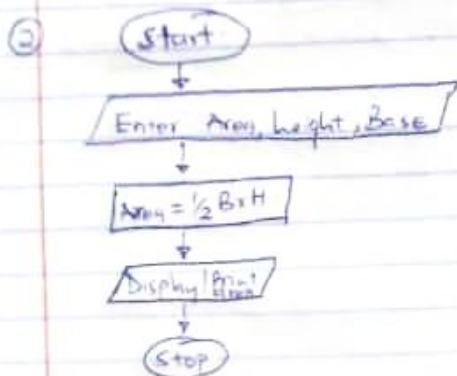 2
Start
Enter Area, height, Base
Area = ½ B x H
Display / Print Area
Stop